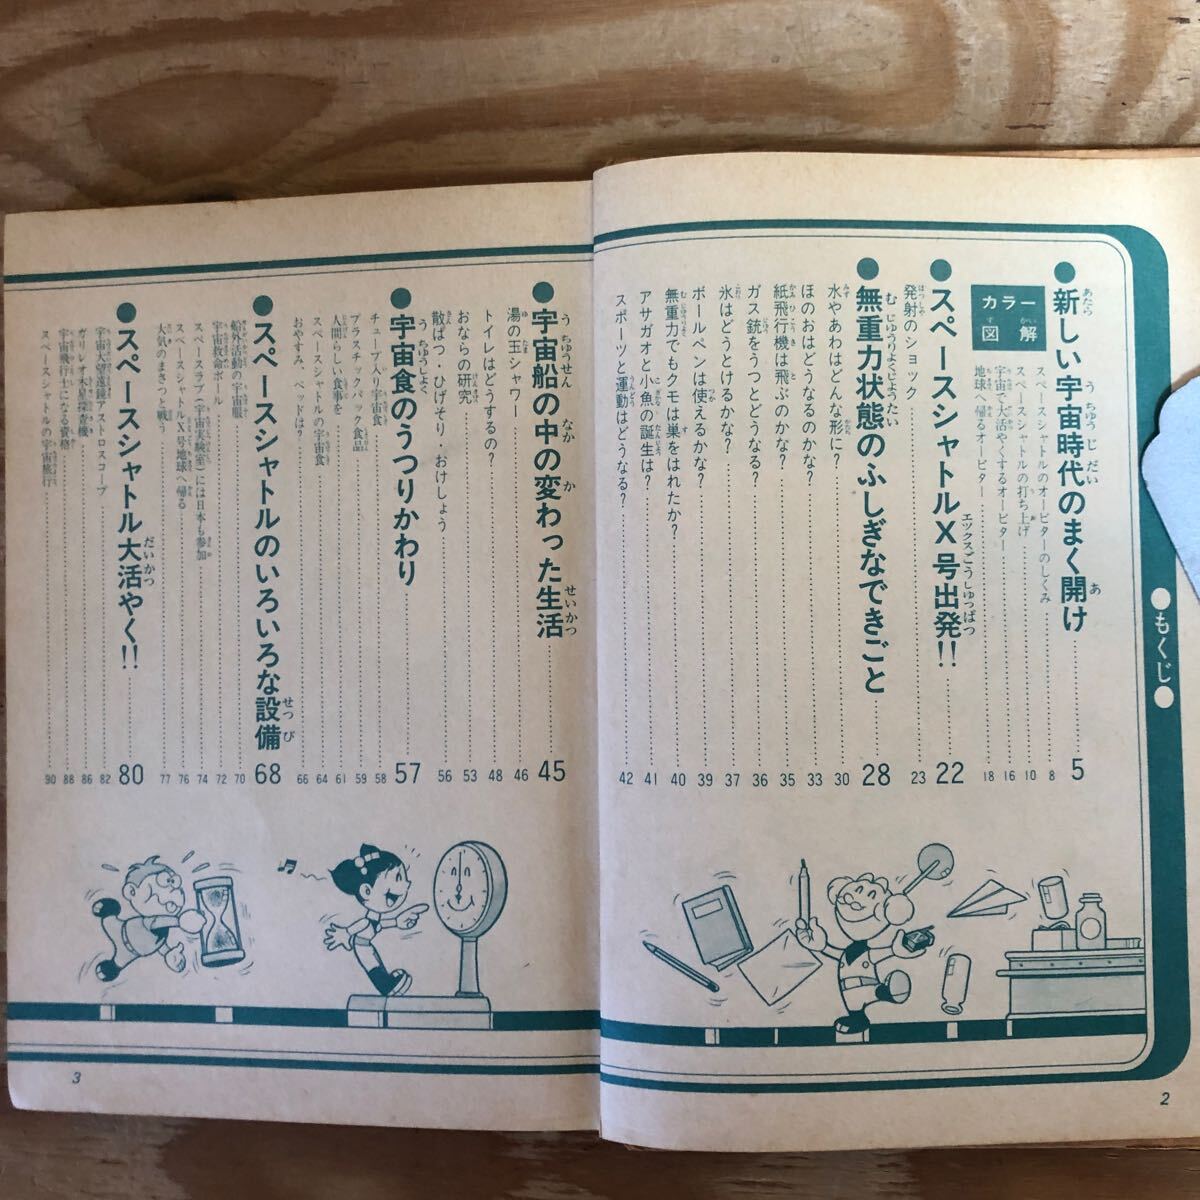 ●もくじ●
●新しい宇宙時代のまく開け……5
カラー図解
スペースシャトルのオービターのしくみ……8
スペースシャトルの打ち上げ……10
宇宙で大活やくするオービター……16
地球へ帰るオービター……18
●スペースシャトルX号出発!!……22
発射のショック……23
●無重力状態のふしぎなできごと……28
水やあわはどんな形に?……30
ほのおはどうなるのかな?……33
紙飛行機は飛ぶのかな?……35
ガス銃をうつとどうなる?……36
氷はどうとけるかな?……37
ボールペンは使えるかな?……39
無重力でもクモは巣をはれたか?……40
アサガオと小魚の誕生は?……41
スポーツと運動はどうなる?……42
2
●宇宙船の中の変わった生活……45
湯の玉シャワー……46
トイレはどうするの?……48
おならの研究……53
散ぱつ・ひげそり・おけしょう……56
●宇宙食のうつりかわり……57
チューブ入り宇宙食……58
プラスチックパック食品……59
人間らしい食事を……61
スペースシャトルの宇宙食……64
おやすみ、ベッドは?……66
●スペースシャトルのいろいろな設備……68
船外活動の宇宙服……70
宇宙救命ボール……72
スペースラブ(宇宙実験室)には日本も参加……74
スペースシャトルX号地球へ帰る……76
大気のまさつと戦う……77
●スペースシャトル大活やく!!……80
宇宙大望遠鏡アストロスコープ……82
ガリレオ木星探査機……86
宇宙飛行士になる資格……88
スペースシャトルの宇宙旅行……90
3